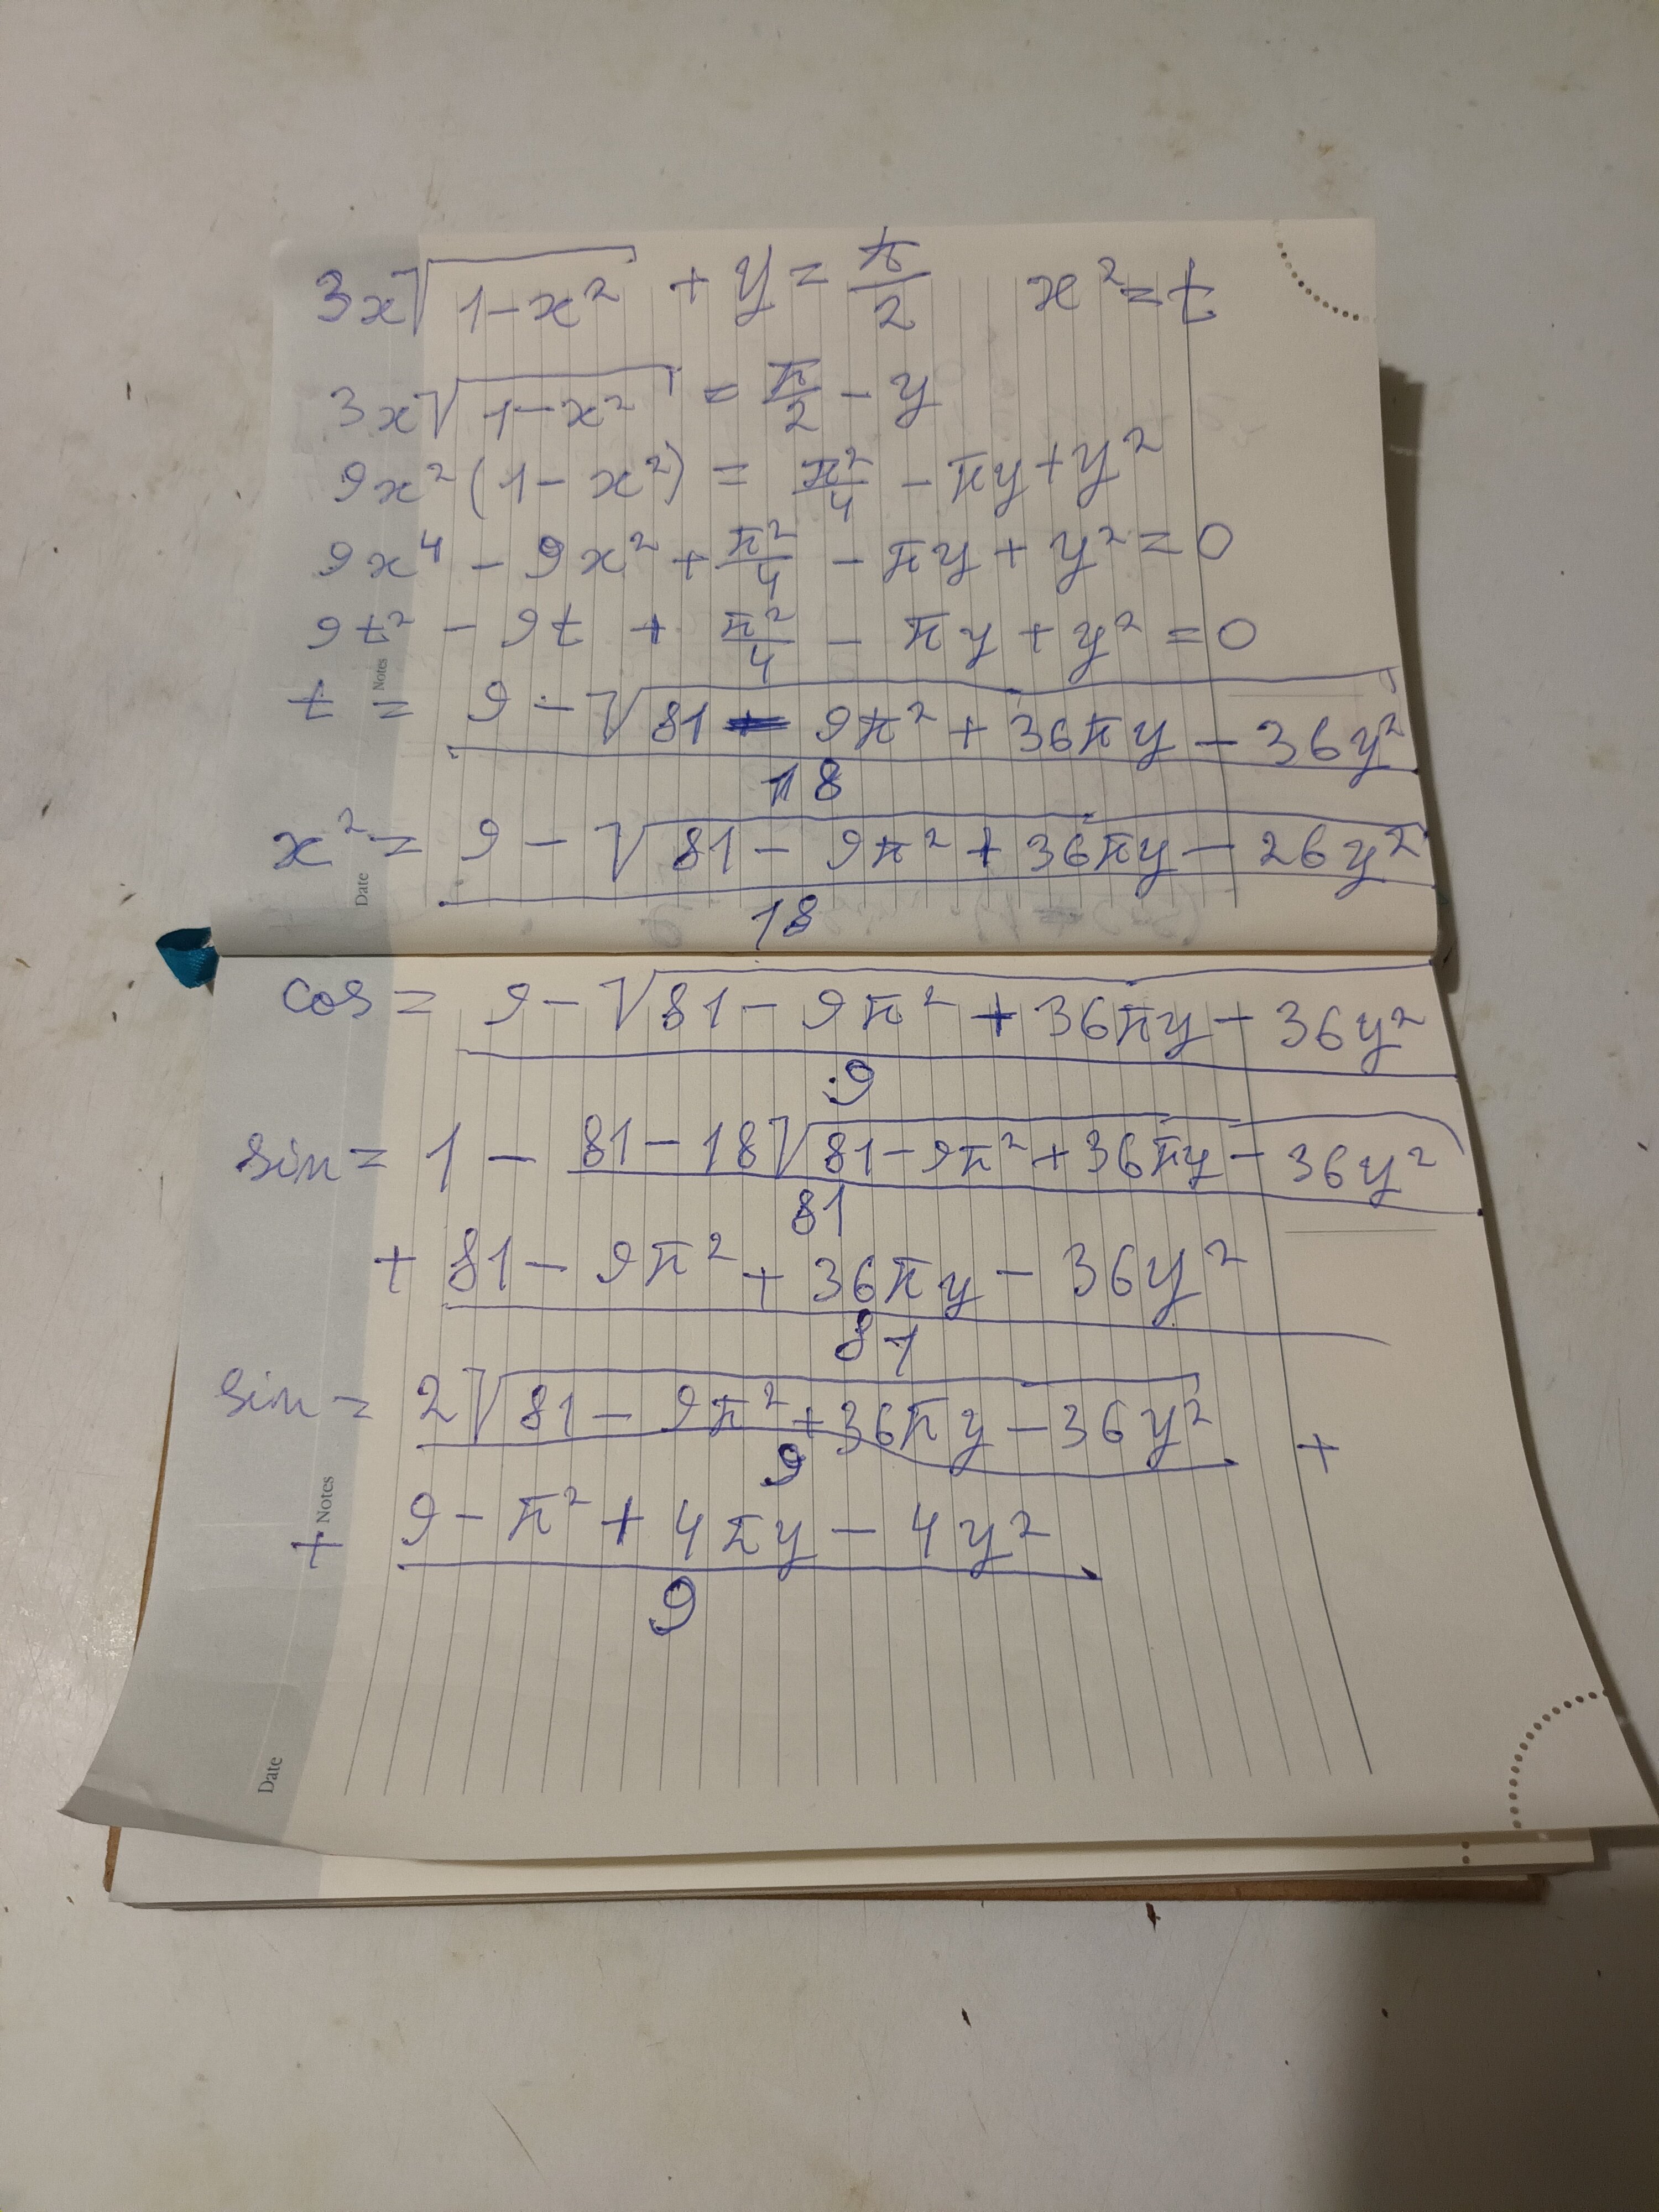 3x√(1-x²) + y = π/2 x² = t
3x√(1-x²) = π/2 - y
9x²(1-x²) = π²/4 - πy + y²
9x⁴ - 9x² + π²/4 - πy + y² = 0
9t² - 9t + π²/4 - πy + y² = 0
Notes
t = (9 - √(81 - 9π² + 36πy - 36y²))/18
x² = (9 - √(81 - 9π² + 36πy - 26y²))/18
Date
cos = (9 - √(81 - 9π² + 36πy - 36y²))/9
sin = 1 - (81 - 18√(81 - 9π² + 36πy - 36y²))/81
+ (81 - 9π² + 36πy - 36y²)/81
sin = (2√(81 - 9π² + 36πy - 36y²))/9 +
+ (9 - π² + 4πy - 4y²)/9
Notes
Date